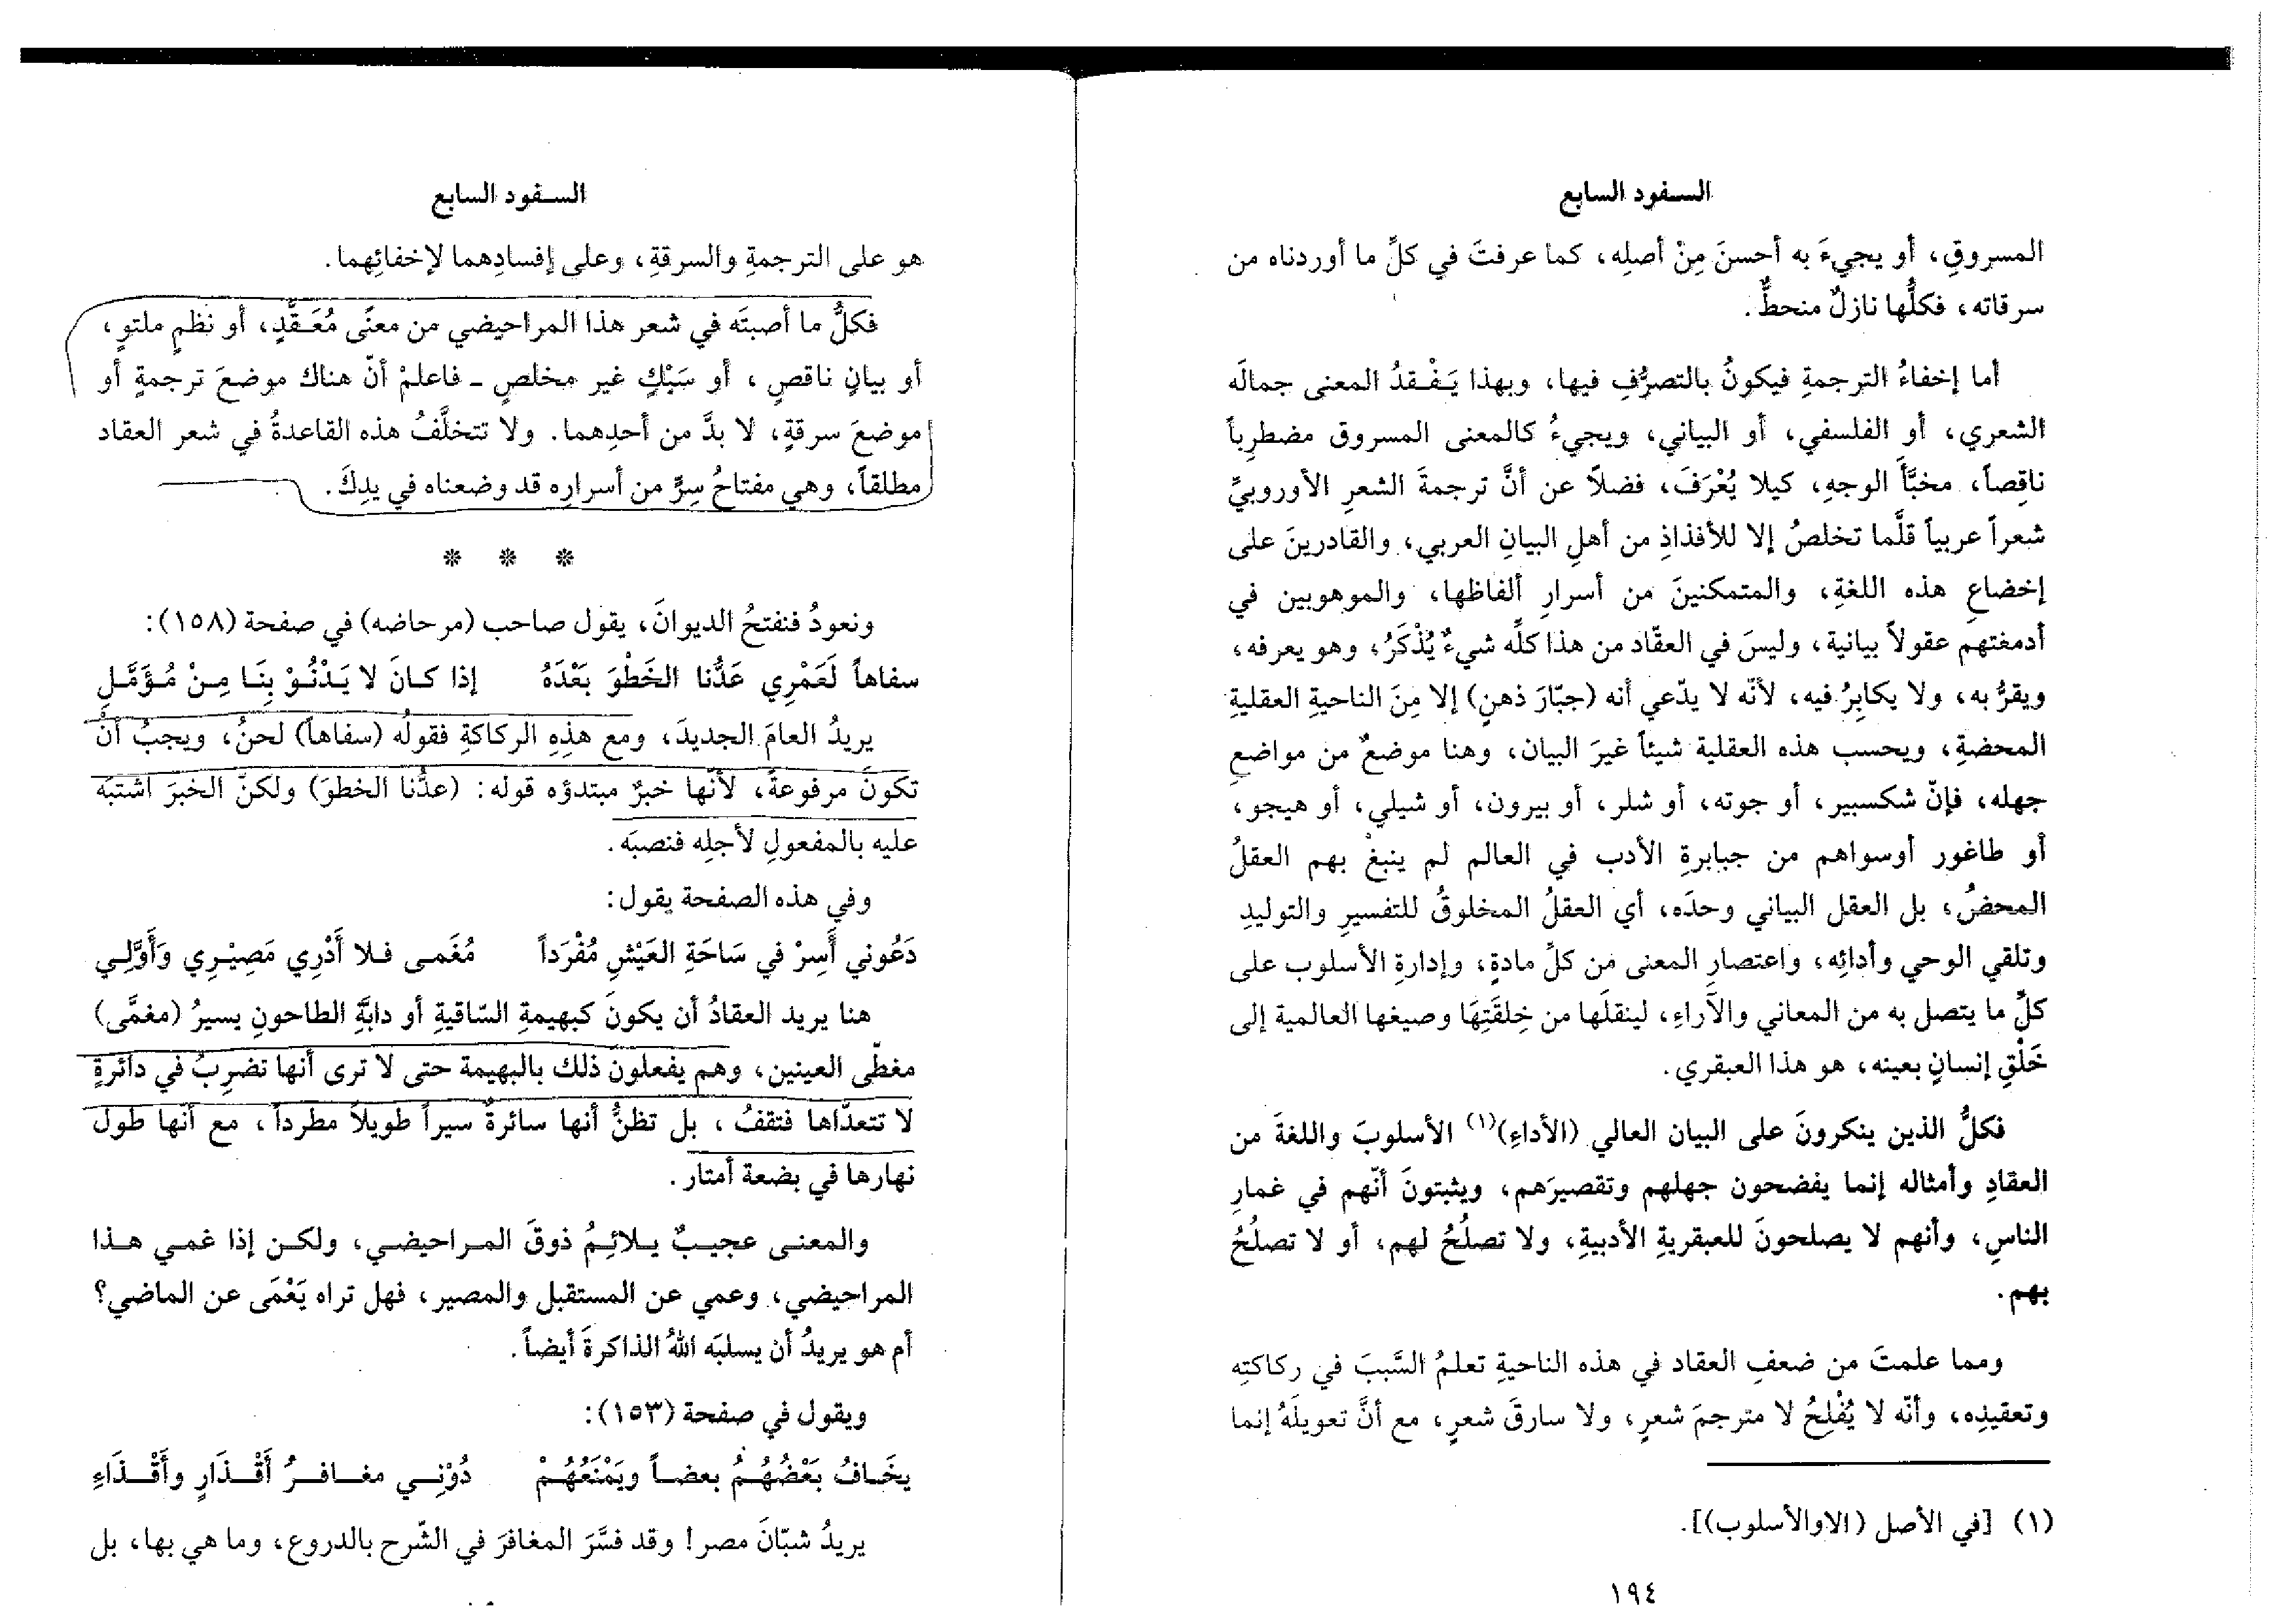 السفود السابع
المسروقِ، أو يجيءَ به أحسنَ مِنْ أصلِه، كما عرفتَ في كلِّ ما أوردناه من
سرقاته، فكلُّها نازلٌ منحطٌّ.
أما إخفاءُ الترجمةِ فيكونُ بالتصرُّفِ فيها، وبهذا يَفْقدُ المعنى جمالَه
الشعري، أو الفلسفي، أو البياني، ويجيءُ كالمعنى المسروق مضطرباً
ناقِصاً، مخبَّأَ الوجهِ، كيلا يُعْرَفَ، فضلاً عن أنَّ ترجمةَ الشعرِ الأوروبيِّ
شعراً عربياً قلَّما تخلصُ إلا للأفذاذِ من أهلِ البيانِ العربي، والقادرينَ على
إخضاعِ هذه اللغةِ، والمتمكنينَ من أسرارِ ألفاظها، والموهوبين في
أدمغتهم عقولاً بيانية، وليسَ في العقّاد من هذا كلِّه شيءٌ يُذْكَرُ، وهو يعرفه،
ويقرُّ به، ولا يكابِرُ فيه، لأنّه لا يدّعي أنه (جبّارَ ذهنٍ) إلا مِنَ الناحيةِ العقليةِ
المحضةِ، ويحسب هذه العقلية شيئاً غيرَ البيان، وهنا موضعٌ من مواضعِ
جهله، فإنّ شكسبير، أو جوته، أو شلر، أو بيرون، أو شيلي، أو هيجو،
أو طاغور أوسواهم من جبابرةِ الأدب في العالم لم ينبغْ بهم العقلُ
المحضُ، بل العقل البياني وحدَه، أي العقلُ المخلوقُ للتفسيرِ والتوليدِ
وتلقي الوحي وأدائِه، واعتصارِ المعنى من كلِّ مادةٍ، وإدارةِ الأسلوب على
كلِّ ما يتصل به من المعاني والآراءِ، لينقلَها من خِلقَتِهَا وصيغها العالمية إلى
خَلْقِ إنسانٍ بعينه، هو هذا العبقري.
فكلُّ الذين ينكرونَ على البيان العالي (الأداءِ)(١) الأسلوبَ واللغةَ من
العقادِ وأمثاله إنما يفضحون جهلهم وتقصيرَهم، ويثبتونَ أنّهم في غمارِ
الناسِ، وأنهم لا يصلحونَ للعبقريةِ الأدبيةِ، ولا تصلُحُ لهم، أو لا تصلُحُ
بهم.
ومما علمتَ من ضعفِ العقاد في هذه الناحيةِ تعلمُ السَّببَ في ركاكتِه
وتعقيدِه، وأنّه لا يُفْلِحُ لا مترجمَ شعرٍ، ولا سارقَ شعرٍ، مع أنَّ تعويلَهُ إنما
(١) [في الأصل (الاوالأسلوب)].
١٩٤
السفود السابع
هو على الترجمةِ والسرقةِ، وعلى إفسادِهما لإخفائِهما.
فكلُّ ما أصبتَه في شعر هذا المراحيضي من معنًى مُعَقَّدٍ، أو نظمٍ ملتوٍ،
أو بيانٍ ناقصٍ، أو سَبْكٍ غير مخلصٍ - فاعلمْ أنّ هناك موضعَ ترجمةٍ أو
موضعَ سرقةٍ، لا بدَّ من أحدِهما. ولا تتخلَّفُ هذه القاعدةُ في شعر العقاد
مطلقاً، وهي مفتاحُ سِرٍّ من أسرارِه قد وضعناه في يدِكَ.
* * *
ونعودُ فنفتحُ الديوانَ، يقول صاحب (مرحاضه) في صفحة (١٥٨):
سفاهاً لَعَمْرِي عَدُّنا الخَطْوَ بَعْدَهُ إذا كانَ لا يَدْنُوْ بِنَا مِنْ مُؤَمَّلِ
يريدُ العامَ الجديدَ، ومع هذِهِ الركاكةِ فقولُه (سفاهاً) لحنٌ، ويجبُ أنْ
تكونَ مرفوعةً، لأنّها خبرٌ مبتدؤه قوله: (عدُّنا الخطوَ) ولكنّ الخبرَ اشتبَه
عليه بالمفعولِ لأجلِه فنصبَه.
وفي هذه الصفحة يقول:
دَعُوني أَسِرْ في سَاحَةِ العَيْشِ مُفْرَداً مُغَمى فلا أَدْرِي مَصِيْرِي وَأَوَّلِي
هنا يريد العقادُ أن يكونَ كبهيمةِ السّاقيةِ أو دابَّةِ الطاحونِ يسيرُ (مغمَّى)
مغطّى العينين، وهم يفعلونَ ذلك بالبهيمة حتى لا ترى أنها تضرِبُ في دائرةٍ
لا تتعدّاها فتقفُ، بل تظنُّ أنها سائرةٌ سيراً طويلاً مطرداً، مع أنّها طول
نهارها في بضعة أمتار.
والمعنى عجيبٌ يلائِمُ ذوقَ المراحيضي، ولكن إذا غمي هذا
المراحيضي، وعمي عن المستقبل والمصير، فهل تراه يَعْمَى عن الماضي؟
أم هو يريدُ أن يسلبَه اللهُ الذاكرةَ أيضاً.
ويقول في صفحة (١٥٣):
يخَافُ بَعْضُهُمُ بعضاً ويَمْنَعُهُمْ دُوْنِي مغافرُ أَقْذَارٍ وأَقْذَاءِ
يريدُ شبّانَ مصر! وقد فسَّرَ المغافرَ في الشّرح بالدروع، وما هي بها، بل